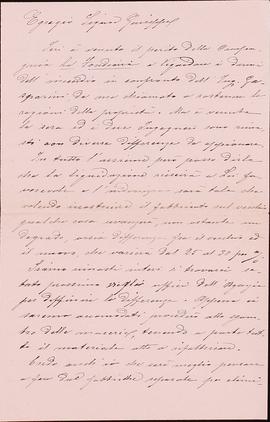 Egregio Signor Giuseppe
Ieri è venuto il perito della Compa-
gnia La Fondiaria a liquidare i danni
dell'incendio in confronto dell'Ing. Gas-
parini da me chiamato a sostener le
ragioni della proprietà. Ma è venuta
la sera ed i due Ingegneri sono rima-
sti con diverse differenze da appianare.
In tutto l'assieme però posso dirle
che la liquidazione riescirà a Lei fa-
vorevole e l'indennizzo sarà tale che
volendo ricostruire il fabbricato sul vecchio
qualche cosa avanzerà, non ostante un
degrado, ossia differenza fra il vecchio ed
il nuovo, che varierà dal 25 al 30 per %
Siamo rimasti intesi di trovarci sa-
bato prossimo negli uffici dell'Agenzia
per definire le differenze. Appena ci
saremo accomodati provvederò allo sgom-
bro delle macerie, tenendo a parte tut-
to il materiale atto a rifabbricare.
Credo anch'io che sarà meglio pensare
a far due fabbriche separate per elimi-